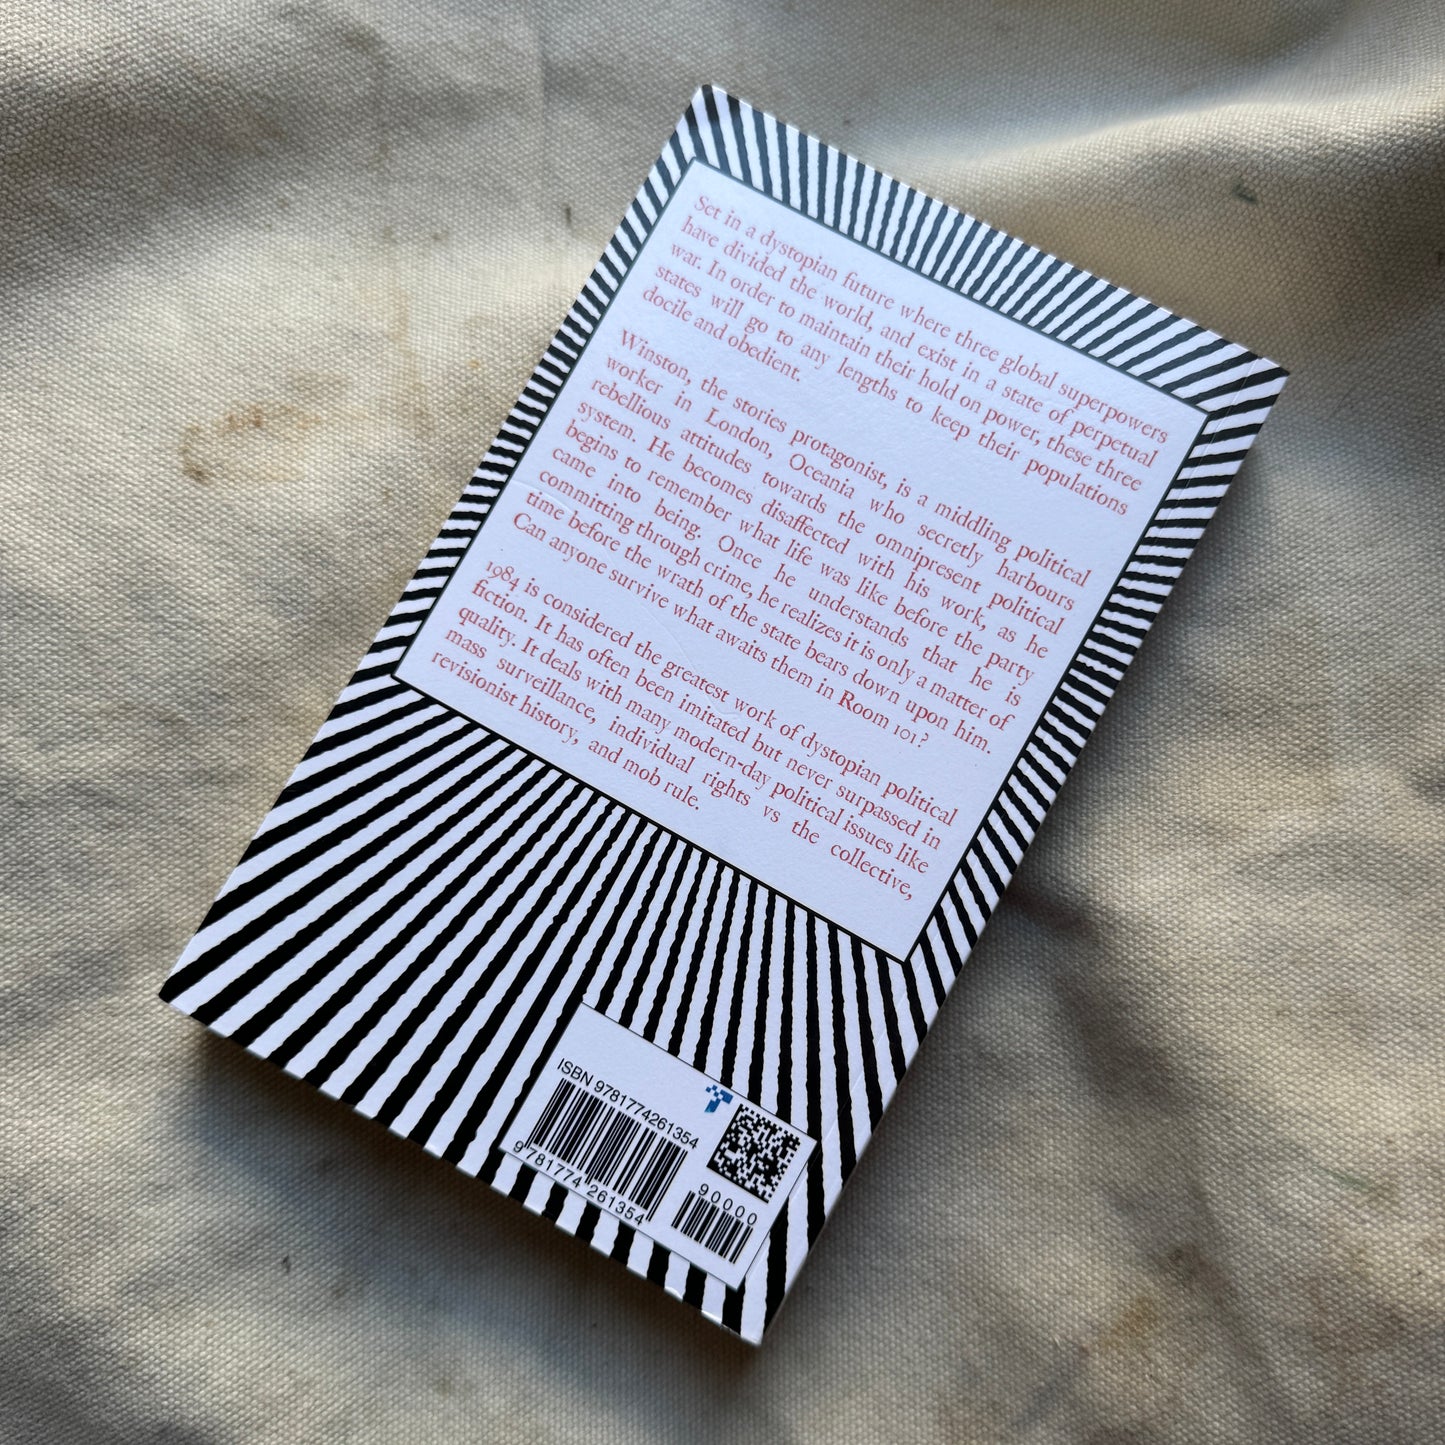 Set in a dystopian future where three global superpowers
have divided the world, and exist in a state of perpetual
war. In order to maintain their hold on power, these three
states will go to any lengths to keep their populations
docile and obedient.
Winston, the stories protagonist, is a middling political
worker in London, Oceania who secretly harbours
rebellious attitudes towards the omnipresent political
system. He becomes disaffected with his work, as he
begins to remember what life was like before the party
came into being. Once he understands that he is
committing through crime, he realizes it is only a matter of
time before the wrath of the state bears down upon him.
Can anyone survive what awaits them in Room 101?
1984 is considered the greatest work of dystopian political
fiction. It has often been imitated but never surpassed in
quality. It deals with many modern-day political issues like
mass surveillance, individual rights vs the collective,
revisionist history, and mob rule.
ISBN 9781774261354
90000
9 781774 261354